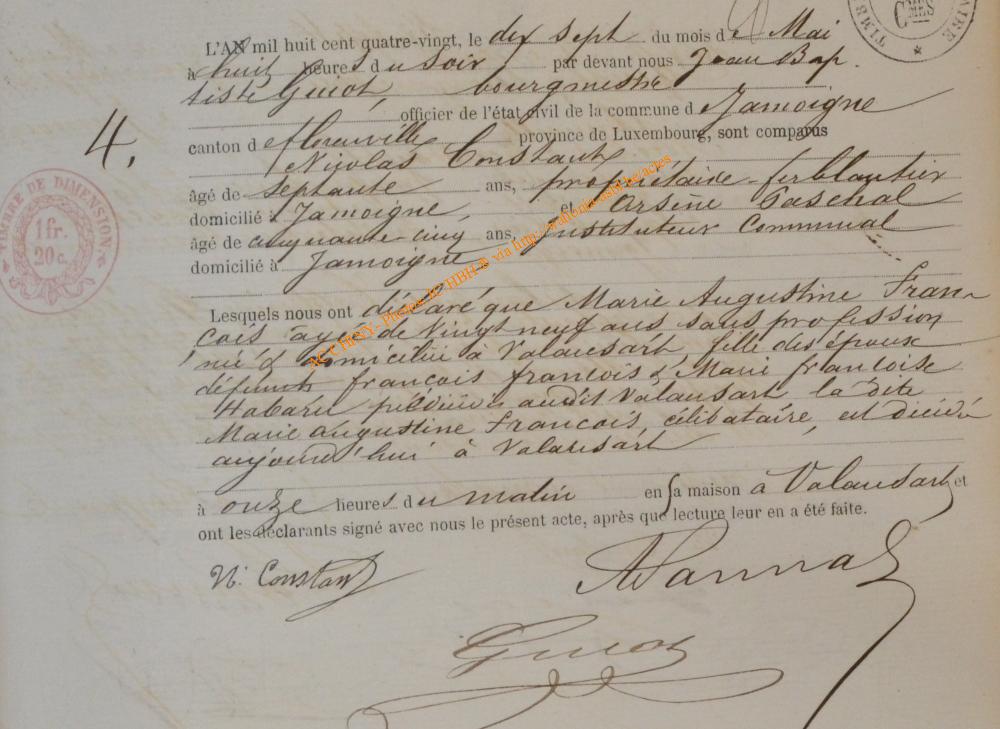 L'AN mil huit cent quatre-vingt, le dix sept du mois de Mai
à huit heures du soir par devant nous Jean Bap-
tiste Guiot, bourgmestre
officier de l'état civil de la commune d Jamoigne
canton d e florenville province de Luxembourg, sont comparus
Nicolas Constant
âgé de septante ans, propriétaire-ferblantier
domicilié à Jamoigne, et Arsène Paschal
âgé de cinquante-cinq ans, Instituteur Communal
domicilié à Jamoigne
Lesquels nous ont déclaré que Marie Augustine Fran-
çois agée de Vingt neuf ans sans profession
née & domiciliée à Valansart, fille des époux
défunts françois françois & Marie françoise
Habaru audit Valansart la dite
Marie augustine François, célibataire, est décédée
aujourd'hui à Valansart
à onze heures du matin en sa maison à Valansart et
ont les déclarants signé avec nous le présent acte, après que lecture leur en a été faite.
N. Constant
Guiot
4.
TIMBRE DE DIMENSION
1 fr.
20 c.